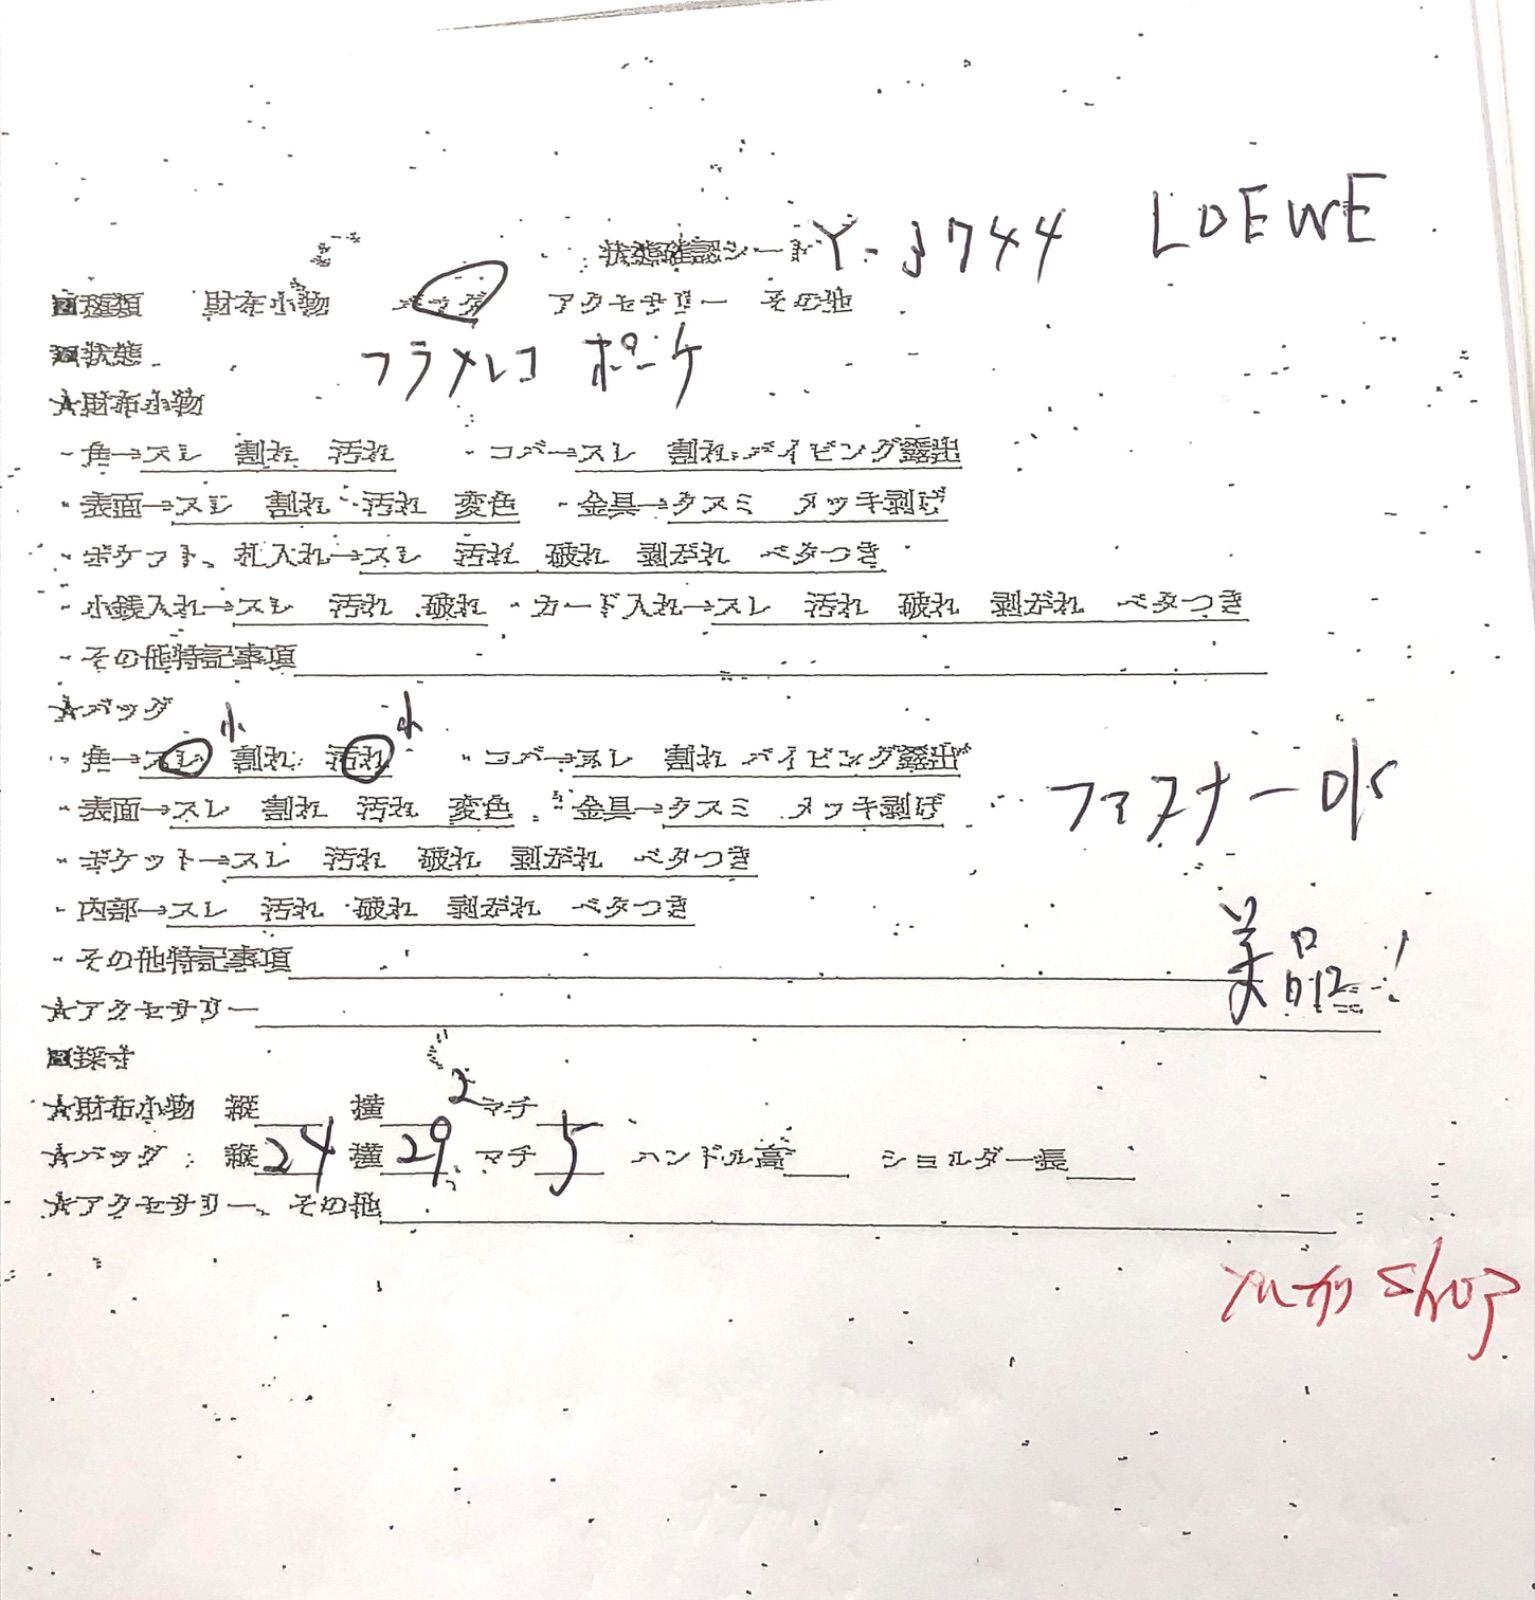 LOEWE
状態確認シート Y-3744
■種類 財布小物 バッグ アクセサリー その他
■状態 フラメンコ ポシェ
★財布小物
・角→スレ 割れ 汚れ ・コバ→スレ 割れ パイピング露出
・表面→スレ 割れ 汚れ 変色 ・金具→クスミ メッキ剥げ
・ポケット、札入れ→スレ 汚れ 破れ 剥がれ ベタつき
・小銭入れ→スレ 汚れ 破れ ・カード入れ→スレ 汚れ 破れ 剥がれ ベタつき
・その他特記事項
★バッグ
小 小
・角→スレ 割れ 汚れ ・コバ→スレ 割れ パイピング露出
・表面→スレ 割れ 汚れ 変色 ・金具→クスミ メッキ剥げ
ファスナー
・ポケット→スレ 汚れ 破れ 剥がれ ベタつき
・内部→スレ 汚れ 破れ 剥がれ ベタつき
・その他特記事項
美品!
★アクセサリー
■採寸
★財布小物 縦 横 マチ
2
★バッグ 縦24 横29 マチ5 ハンドル高 ショルダー長
★アクセサリー、その他
shop